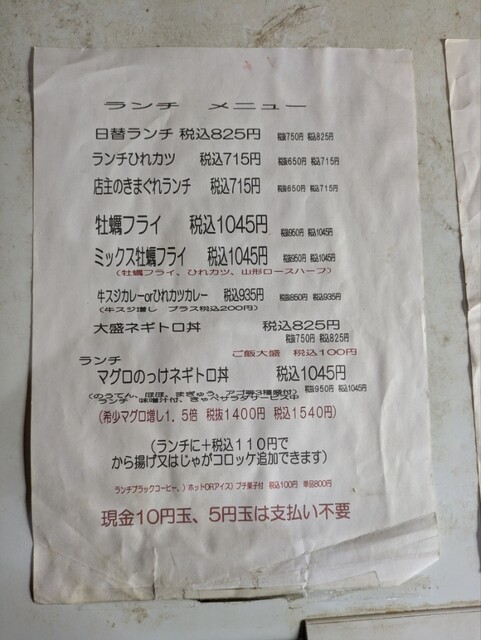 ランチ メニュー
日替ランチ 税込825円 税抜750円 税込825円
ランチひれカツ 税込715円 税抜650円 税込715円
店主のきまぐれランチ 税込715円 税抜650円 税込715円
牡蠣フライ 税込1045円 税抜950円 税込1045円
ミックス牡蠣フライ 税込1045円 税抜950円 税込1045円
(牡蠣フライ、ひれカツ、山形ロースハーフ)
牛スジカレーorひれカツカレー 税込935円 税抜850円 税込935円
(牛スジ増し プラス税込200円)
大盛ネギトロ丼 税込825円
税抜750円 税込825円
ご飯大盛 税込100円
ランチ
マグロのっけネギトロ丼 税込1045円
税抜950円 税込1045円
(のうてん、ほほ、
ランチ 味噌汁付、
(希少マグロ増し1.5倍 税抜1400円 税込1540円)
(ランチに+税込110円で
から揚げ又はじゃがコロッケ追加できます)
ランチブラックコーヒー、)ホットORアイス) プチ菓子付 税込100円 単品800円
現金10円玉、5円玉は支払い不要